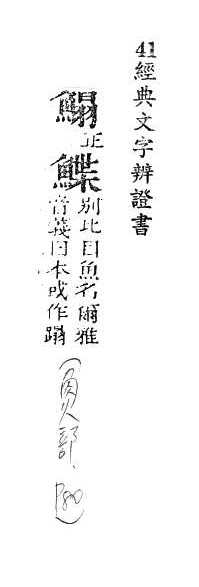 41經典文字辨證書
鰨正鰈別比目魚名爾雅
音義曰本或作蹋
(魚部.